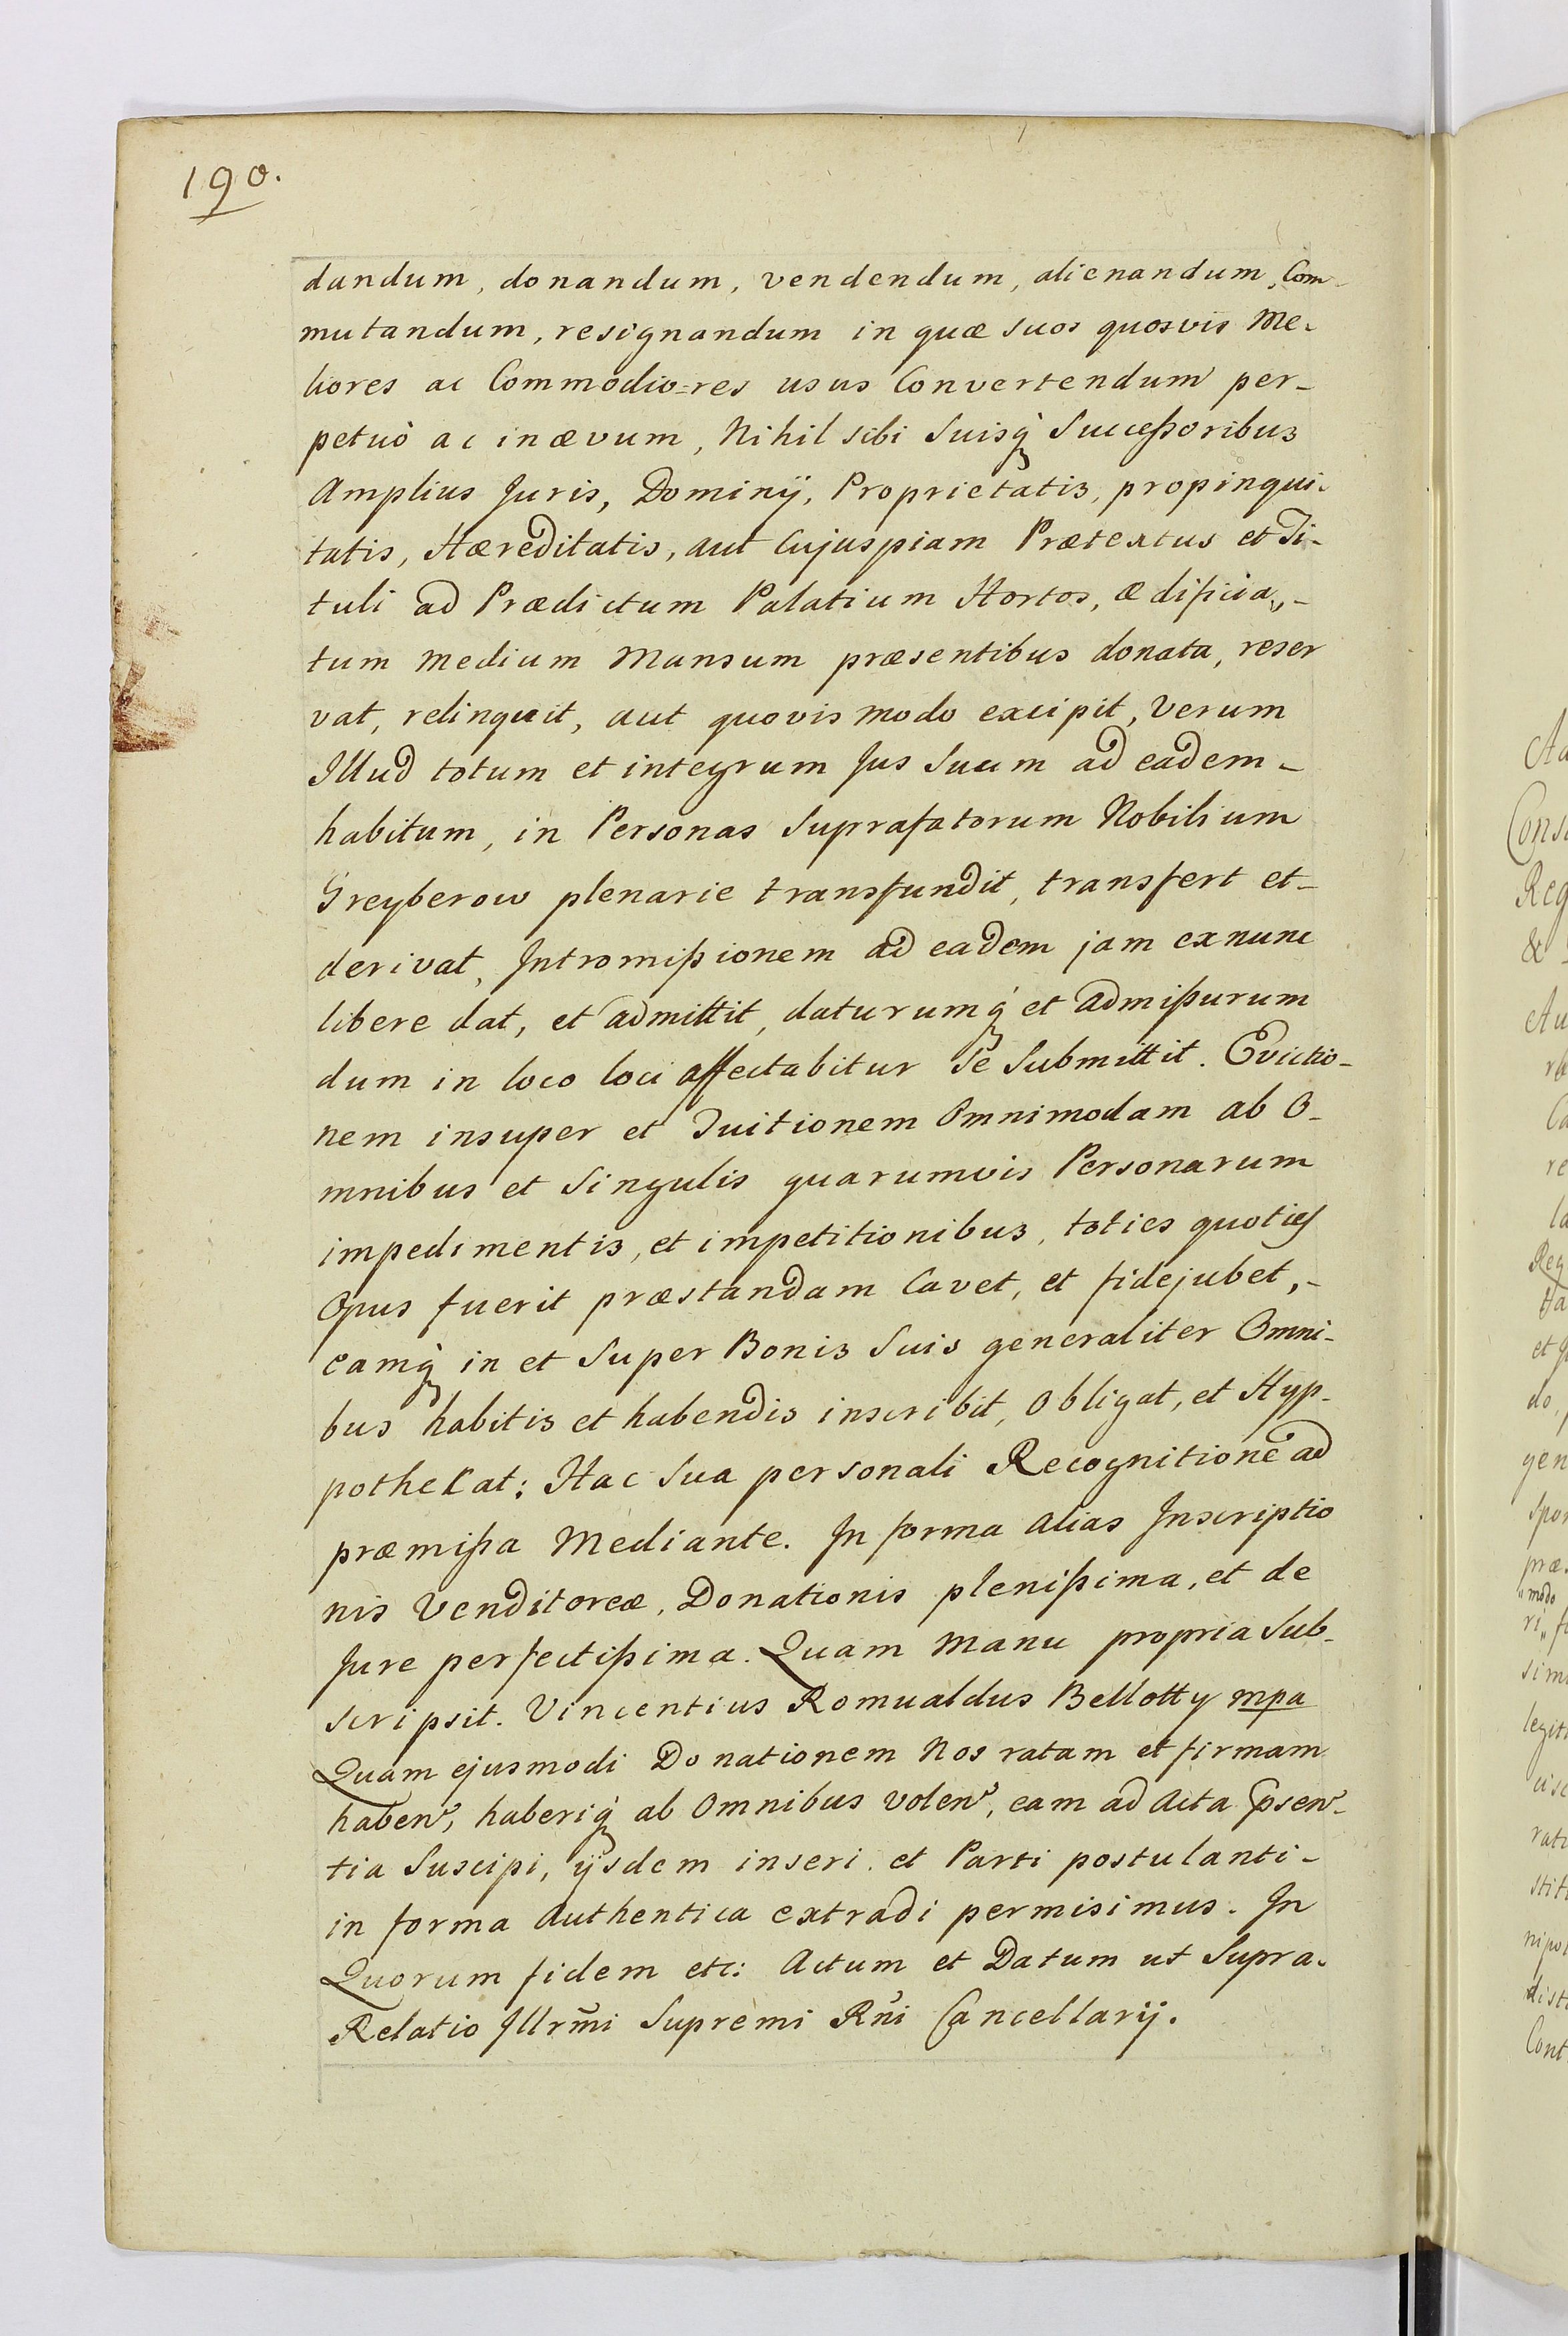 190.
dandum, donandum, vendendum, alienandum, Com-
mutandum, resignandum in quæ suos quosvis Me-
liores ac Commodio=res usus Convertendum per-
petuò ac in ævum, Nihil sibi Suisq̀ Succeßoribus
Amplius Juris, Dominÿ, Proprietatis, propinqui-
tatis, Hæreditatis, aut Cujuspiam Prætextus et Ti-
tuli ad Prædictum Palatium Hortos, ædificia,-
tum medium Mansum præsentibus donata, reser
vat, relinquit, aut quovis modo excipit, Verum
Illud totum et integrum Jus Suum ad eadem-
habitum, in Personas Suprafatorum Nobilium
Greyberow plenarie transfundit, transfert et-
derivat, Intromißionem ad eadem jam exnunc
libere dat, et admittit, daturumq̀ et admißurum
dum in loco loci affectabitur Se Submittit. Evictio-
nem insuper et Tuitionem Omnimodam ab O-
mnibus et Singulis quarumvis Personarum
impedimentis, et impetitionibus, toties quoties
Opus fuerit præstandam Cavet, et fidejubet,-
eamq̀ in et Super Bonis Suis generaliter Omni-
bus habitis et habendis inscribit, Obligat, et Hyp-
pothekat: Hac Sua personali Recognitione ad
præmißa Mediante. In forma alias Inscriptio
nis Venditoreæ, Donationis plenißima, et de
Jure perfectißima. Quam Manu propria Sub-
scripsit. Vincentius Romualdus Bellotty mpa
Quam ejusmodi Donationem Nos ratam et firmam
haben̄, haberiq̀ ab Omnibus volen̄, eam ad Acta p̄sen-
tia Suscipi, ÿsdem inseri et Parti postulanti-
in forma Authentica extradi permisimus. In
Quorum fidem etc: Actum et Datum ut Supra.
Relatio Illrm̄i Supremi Rn̄i Cancellarÿ.